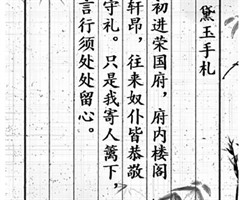 黛玉手札
初进荣国府，府内楼阁
轩昂，往来奴仆皆恭敬
守礼。只是我寄人篱下，
言行须处处留心。